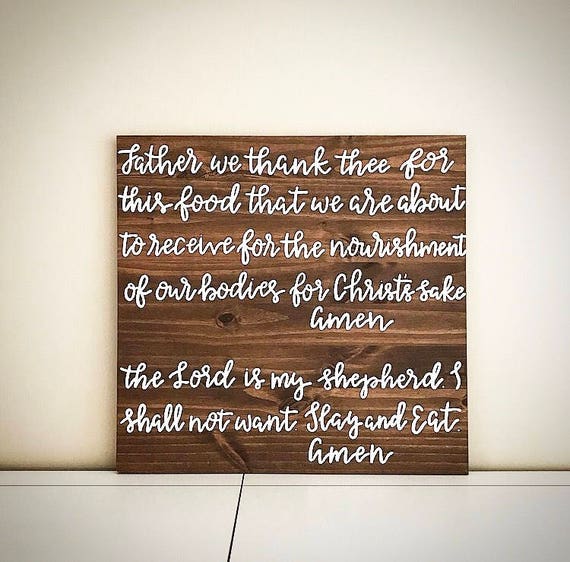 Father we thank thee for
this food that we are about
to receive for the nourishment
of our bodies for Christ's sake
amen
the Lord is my shepherd. I
shall not want. Slay and Eat.
amen